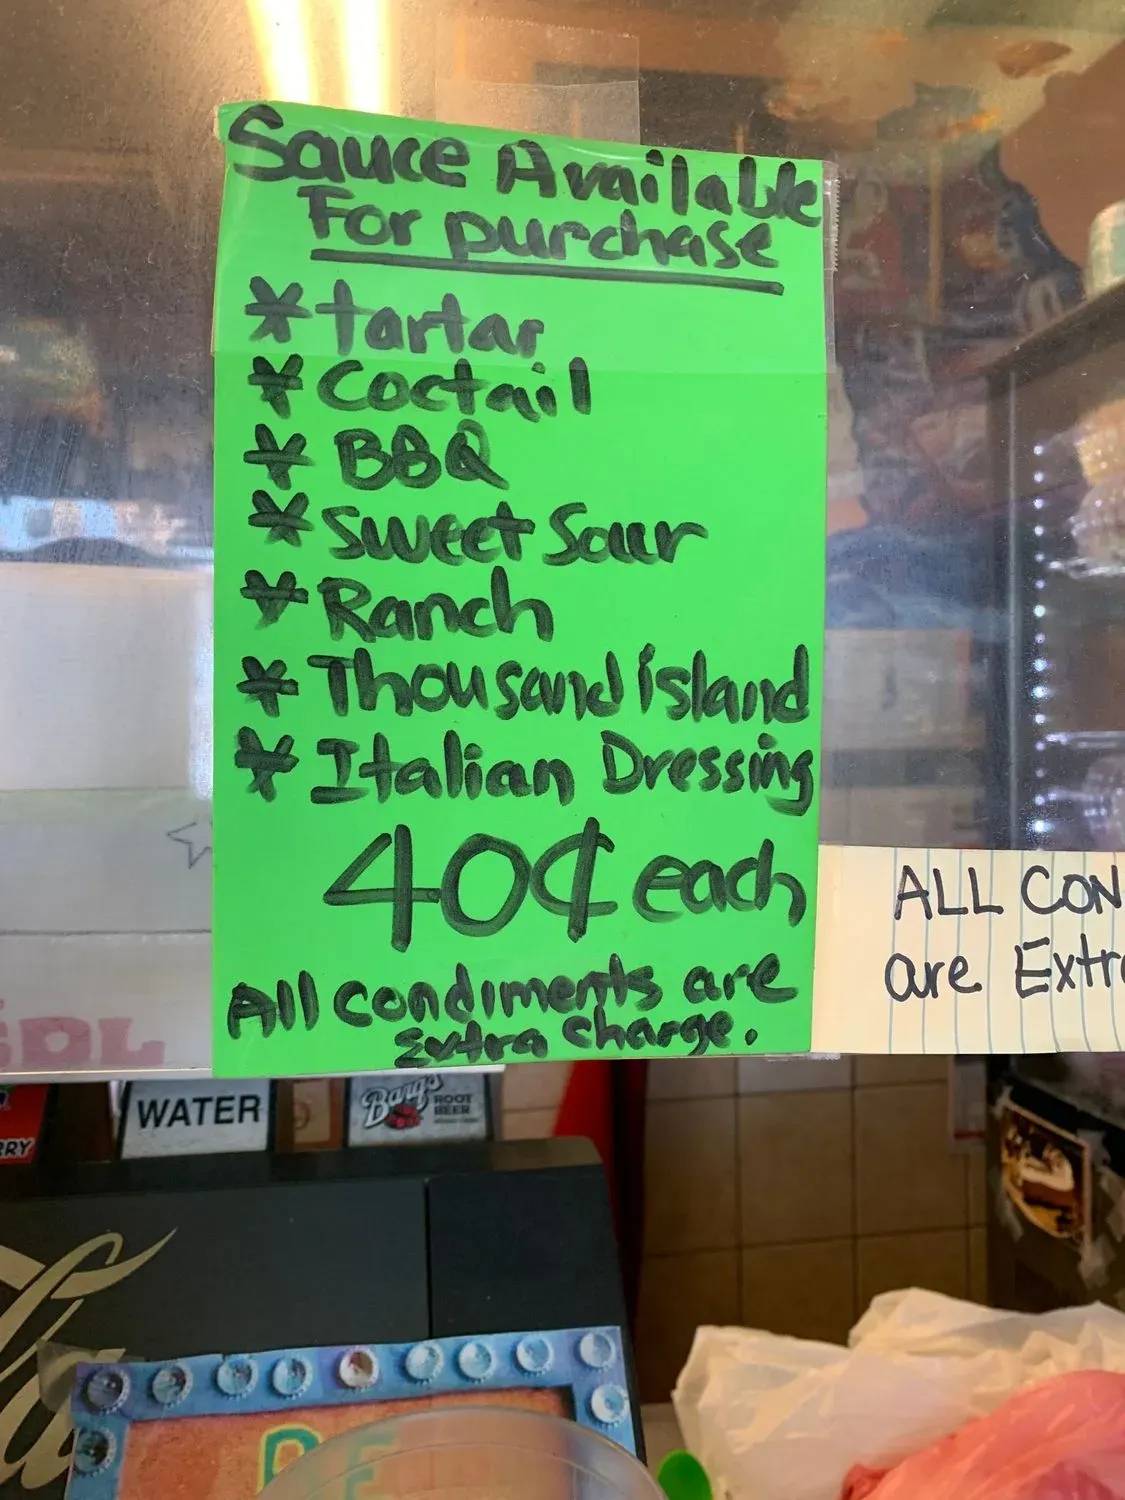 Sauce Available
For purchase
* tartar
* Coctail
* BBQ
* Sweet Sour
* Ranch
* Thousand island
* Italian Dressing
40¢ each
All condiments are
Extra charge.
ALL CON
are Extr
WATER
Barq's
ROOT
BEER
RRY